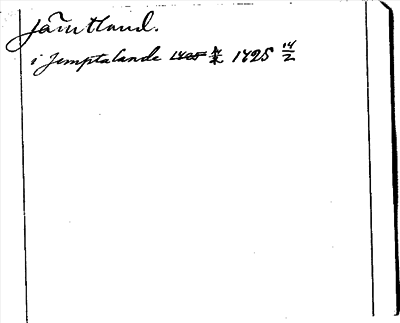 Jämtland.
i Jemptalande 1425 14/2